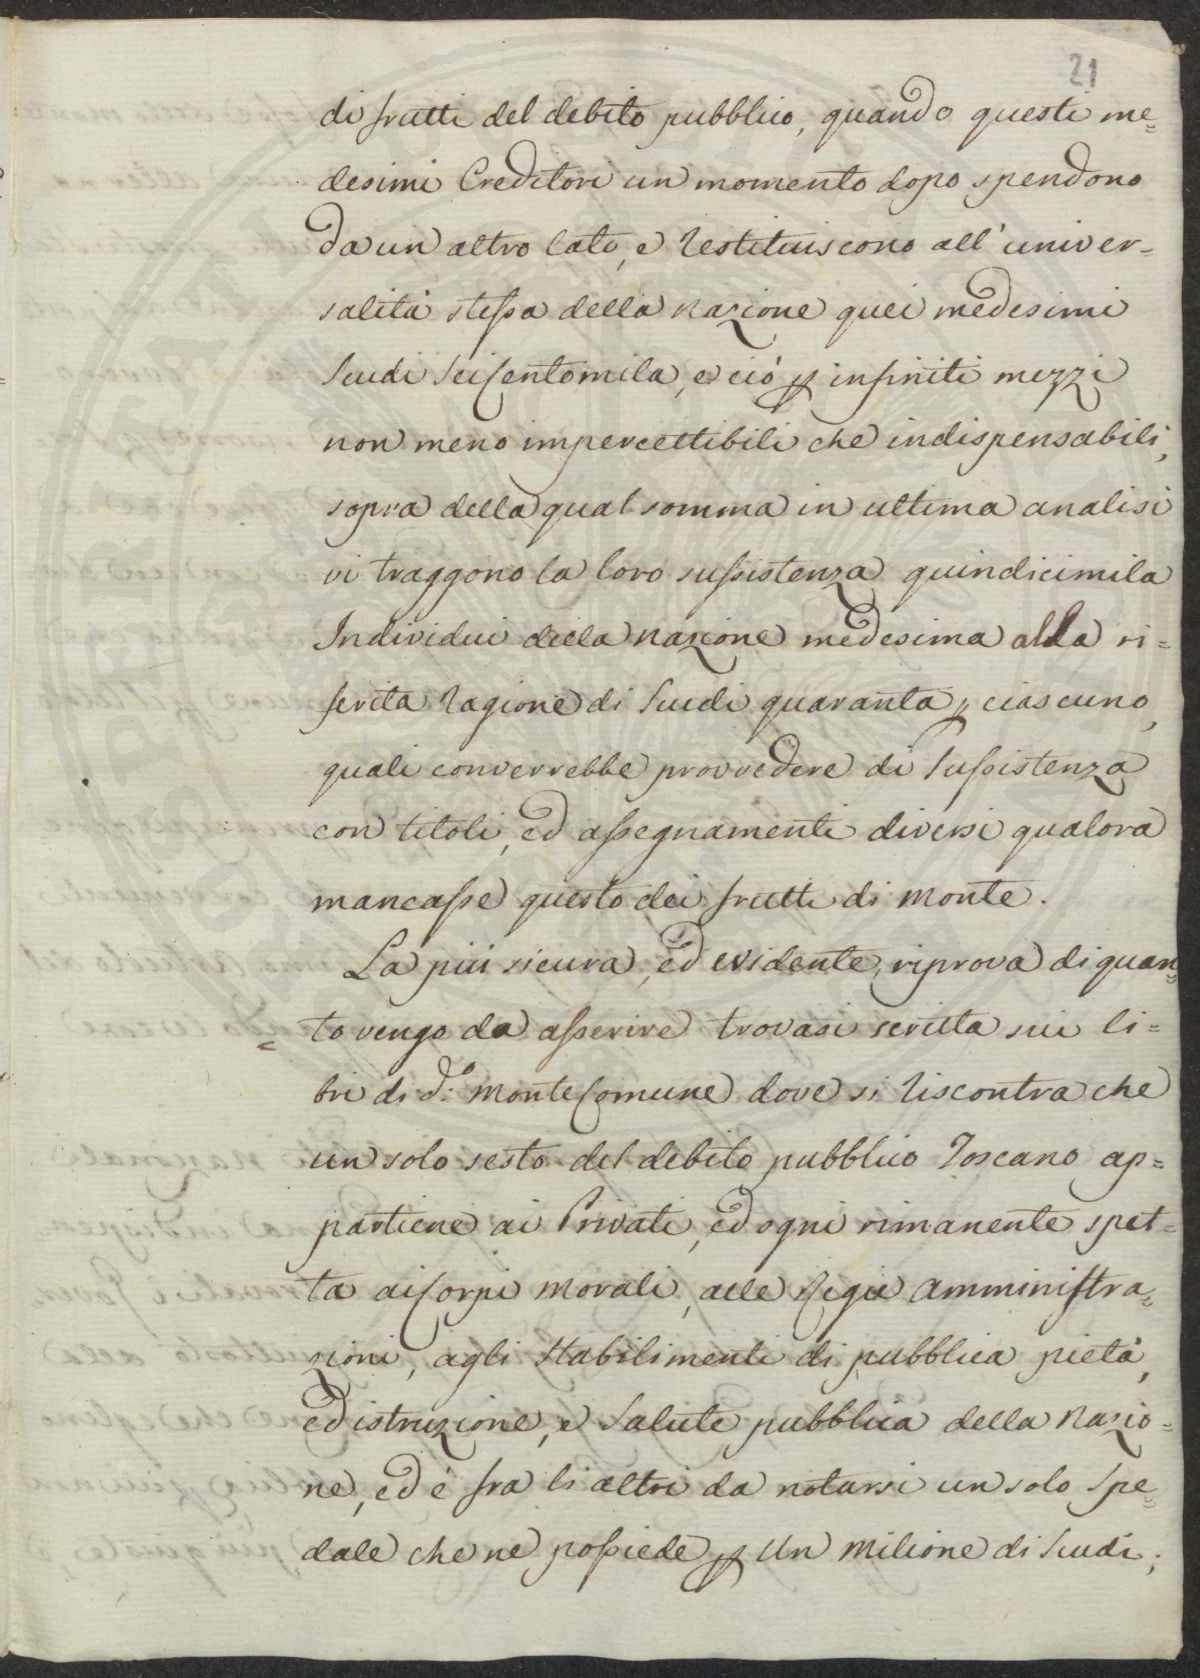 21
di frutti del debito pubblico, quando questi me=
desimi Creditori un momento dopo spendono
da un altro lato, e restituiscono all' univer-
salità stessa della Nazione quei medesimi
Scudi Seicentomila, e ciò p infiniti mezzi
non meno impercettibili che indispensabili,
sopra della qual somma in ultima analisi
vi traggono la loro sussistenza quindicimila
Individui della Nazione medesima alla ri=
ferita ragione di Scudi quaranta p ciascuno,
quali converrebbe provvedere di Sussistenza
con titoli, ed assegnamenti diversi qualora
mancasse questo dei frutti di Monte.
La più sicura, ed evidente, riprova di quan=
to vengo da asserire trovasi scritta sui li=
bri di d.o Monte Comune dove si riscontra che
un solo sesto del debito pubblico Toscano ap=
partiene ai Privati, ed ogni rimanente spet=
ta ai Corpi Morali, alle Regie Amministra=
zioni, agli Stabilimenti di pubblica pietà,
ed istruzione, e Salute pubblica della Nazio=
ne, ed è fra li altri da notarsi un solo Spe=
dale che ne possiede p Un Milione di Scudi;